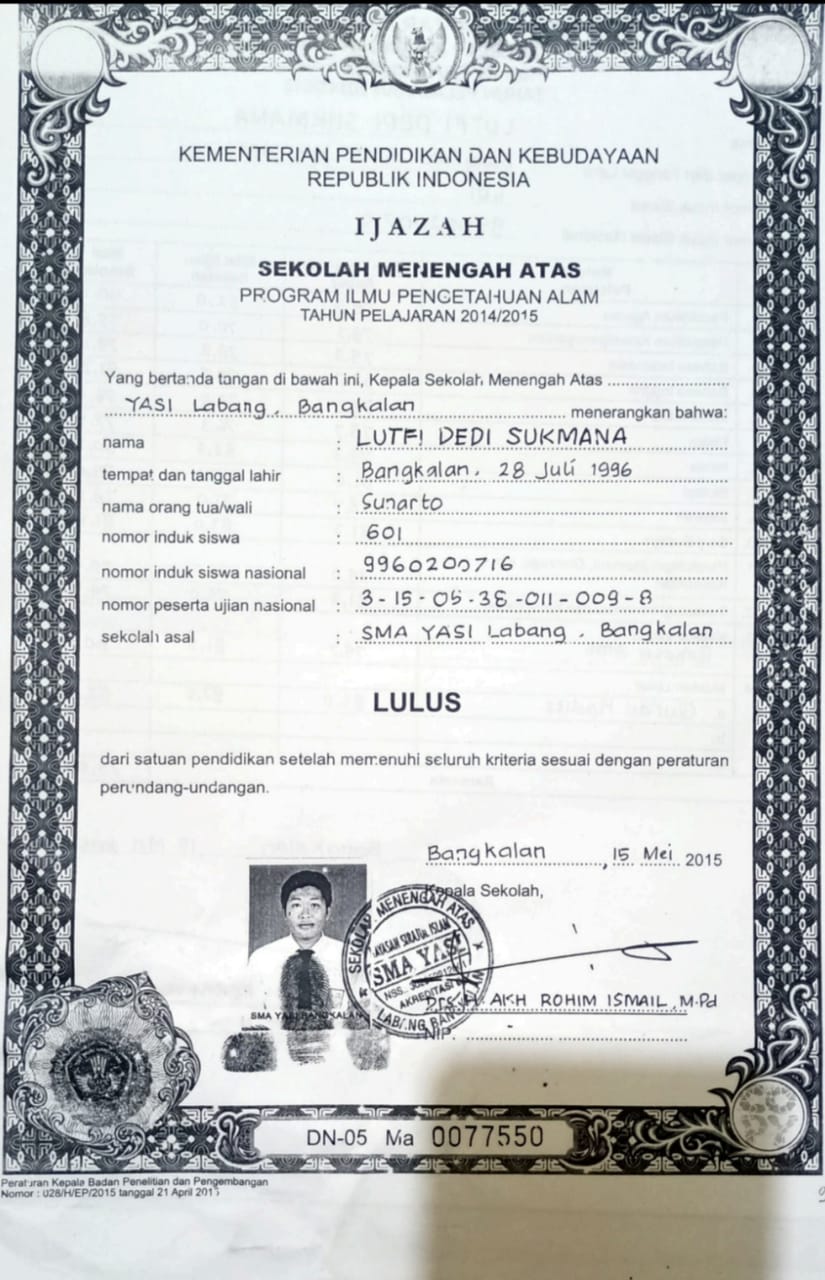 KEMENTERIAN PENDIDIKAN DAN KEBUDAYAAN
REPUBLIK INDONESIA
IJAZAH
SEKOLAH MENENGAH ATAS
PROGRAM ILMU PENGETAHUAN ALAM
TAHUN PELAJARAN 2014/2015
Yang bertanda tangan di bawah ini, Kepala Sekolah Menengah Atas
YASI Labang, Bangkalan menerangkan bahwa:
nama : LUTFI DEDI SUKMANA
tempat dan tanggal lahir : Bangkalan, 28 Juli 1996
nama orang tua/wali : Sunarto
nomor induk siswa : 601
nomor induk siswa nasional : 9960200716
nomor peserta ujian nasional : 3-15-05-38-011-009-8
sekolah asal : SMA YASI Labang, Bangkalan
LULUS
dari satuan pendidikan setelah memenuhi seluruh kriteria sesuai dengan peraturan
perundang-undangan.
Bangkalan, 15 Mei 2015
Kepala Sekolah,
SEKOLAH MENENGAH ATAS
SMA YASI
NSS.
AKREDITASI
LABANG
SMA YASI BANGKALAN
Drs. H. AKH ROHIM ISMAIL, M.Pd
NIP.
DN-05 Ma 0077550
Peraturan Kepala Badan Penelitian dan Pengembangan
Nomor : 028/H/EP/2015 tanggal 21 April 2015